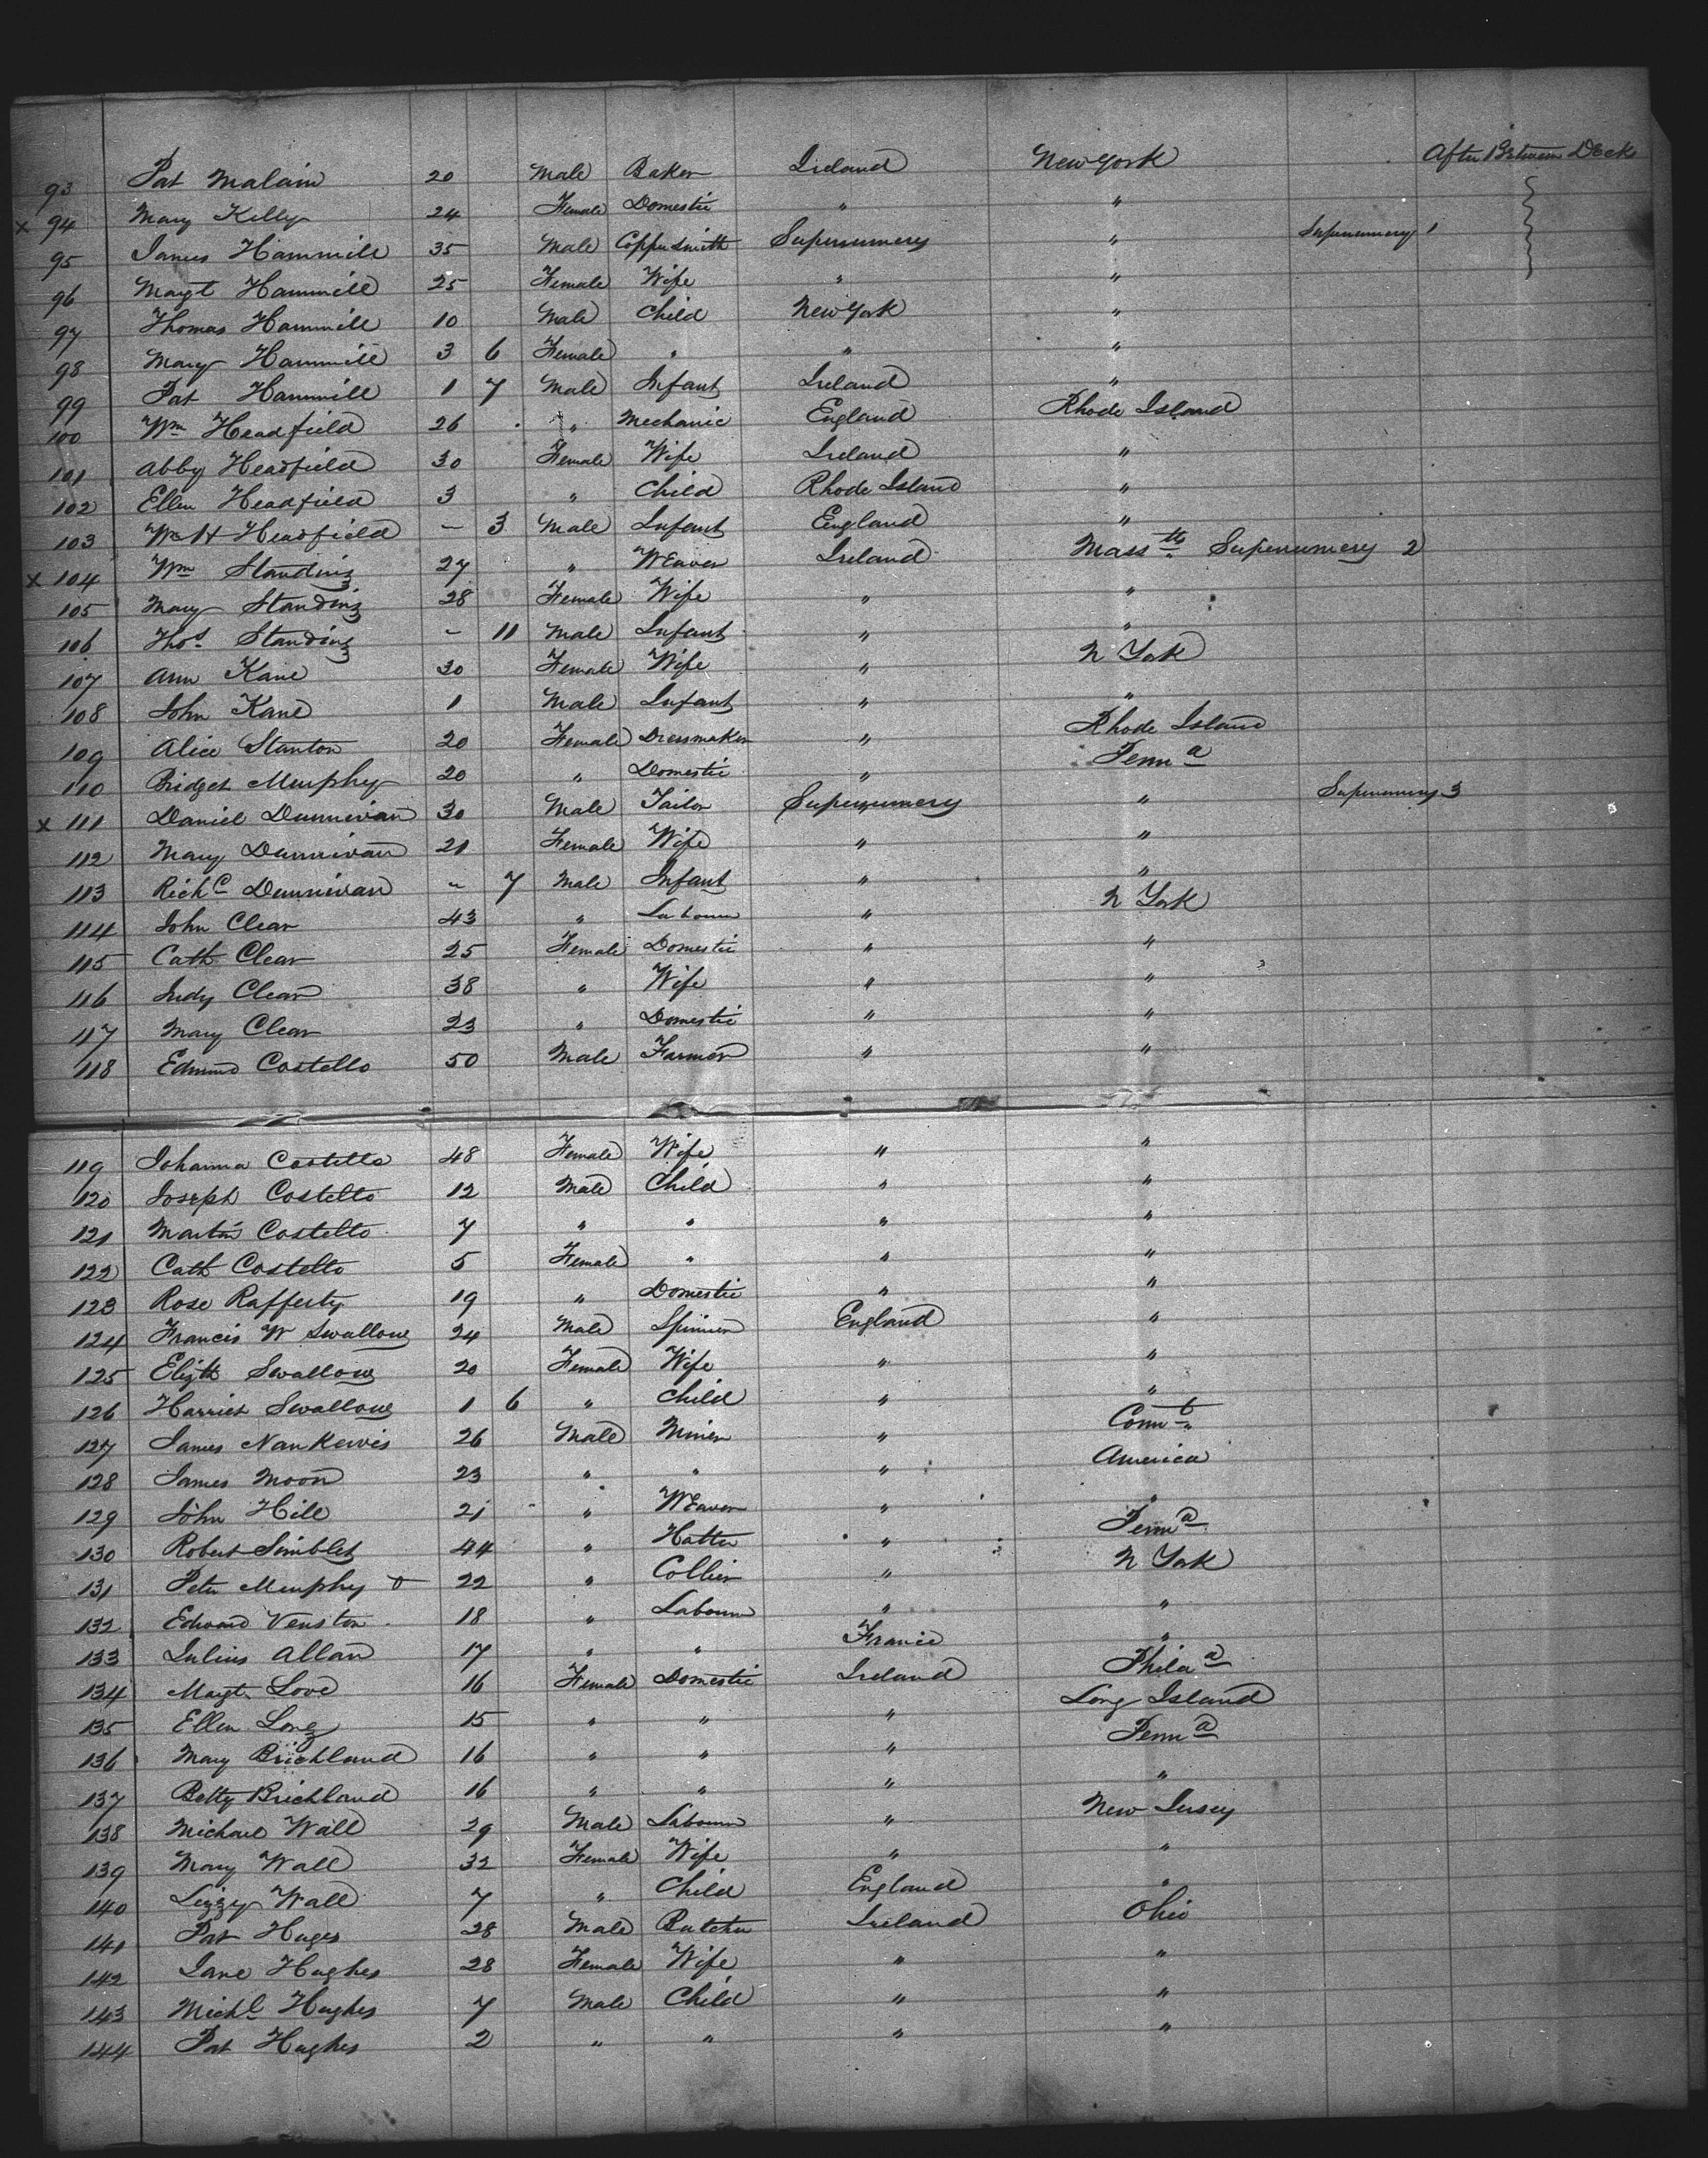 93 Pat Malain 20 Male Baker Ireland New York After Between Deck
x 94 Mary Kelly 24 Female Domestic " "
95 James Hammill 35 Male Coppersmith Supernumery " Supernumery 1
96 Margt Hammill 25 Female Wife " "
97 Thomas Hammill 10 Male Child New York "
98 Mary Hammill 3 6 Female " " "
99 Pat Hammill 1 7 Male Infant Ireland "
100 Wm Headfield 26 " Mechanic England Rhode Island
101 Abby Headfield 30 Female Wife Ireland "
102 Ellen Headfield 3 " Child Rhode Island "
103 Wm H Headfield - 3 Male Infant England "
x 104 Wm Standing 27 " Weaver Ireland Masstts Supernumery 2
105 Mary Standing 28 Female Wife " "
106 Thos Standing - 11 Male Infant " "
107 Ann Kane 30 Female Wife " N York
108 John Kane 1 Male Infant " "
109 Alice Stanton 20 Female Dressmaker " Rhode Island
110 Bridget Murphy 20 " Domestic " Penna
x 111 Daniel Dunnivan 30 Male Tailor Supernumery " Supernumery 3
112 Mary Dunnivan 21 Female Wife " "
113 Richd Dunnivan - 7 Male Infant " "
114 John Clear 43 " Labourer " N York
115 Cath Clear 25 Female Domestic " "
116 Judy Clear 38 " Wife " "
117 Mary Clear 23 " Domestic " "
118 Edmund Costello 50 Male Farmer " "
119 Johanna Costello 48 Female Wife " "
120 Joseph Costello 12 Male Child " "
121 Martin Costello 7 " " " "
122 Cath Costello 5 Female " " "
123 Rose Rafferty 19 " Domestic " "
124 Francis W Swallow 24 Male Spinner England "
125 Elizth Swallow 20 Female Wife " "
126 Harriet Swallow 1 6 " Child " "
127 James Nankervis 26 Male Miner " Connt
128 James Moon 23 " " " America
129 John Hill 21 " Weaver " "
130 Robert Simblet 44 " Hatter " Penna
131 Peter Murphy 22 " Collier " N York
132 Edward Venston 18 " Labourer " "
133 Julius Allan 17 " " France "
134 Margt Love 16 Female Domestic Ireland Phila
135 Ellen Long 15 " " " Long Island
136 Mary Brichland 16 " " " Penna
137 Betty Brichland 16 " " " "
138 Michael Wall 29 Male Labourer " New Jersey
139 Mary Wall 32 Female Wife " "
140 Lizzy Wall 7 " Child England "
141 Pat Huges 28 Male Butcher Ireland Ohio
142 Jane Hughes 28 Female Wife " "
143 Michl Hughes 7 Male Child " "
144 Pat Hughes 2 " " " "